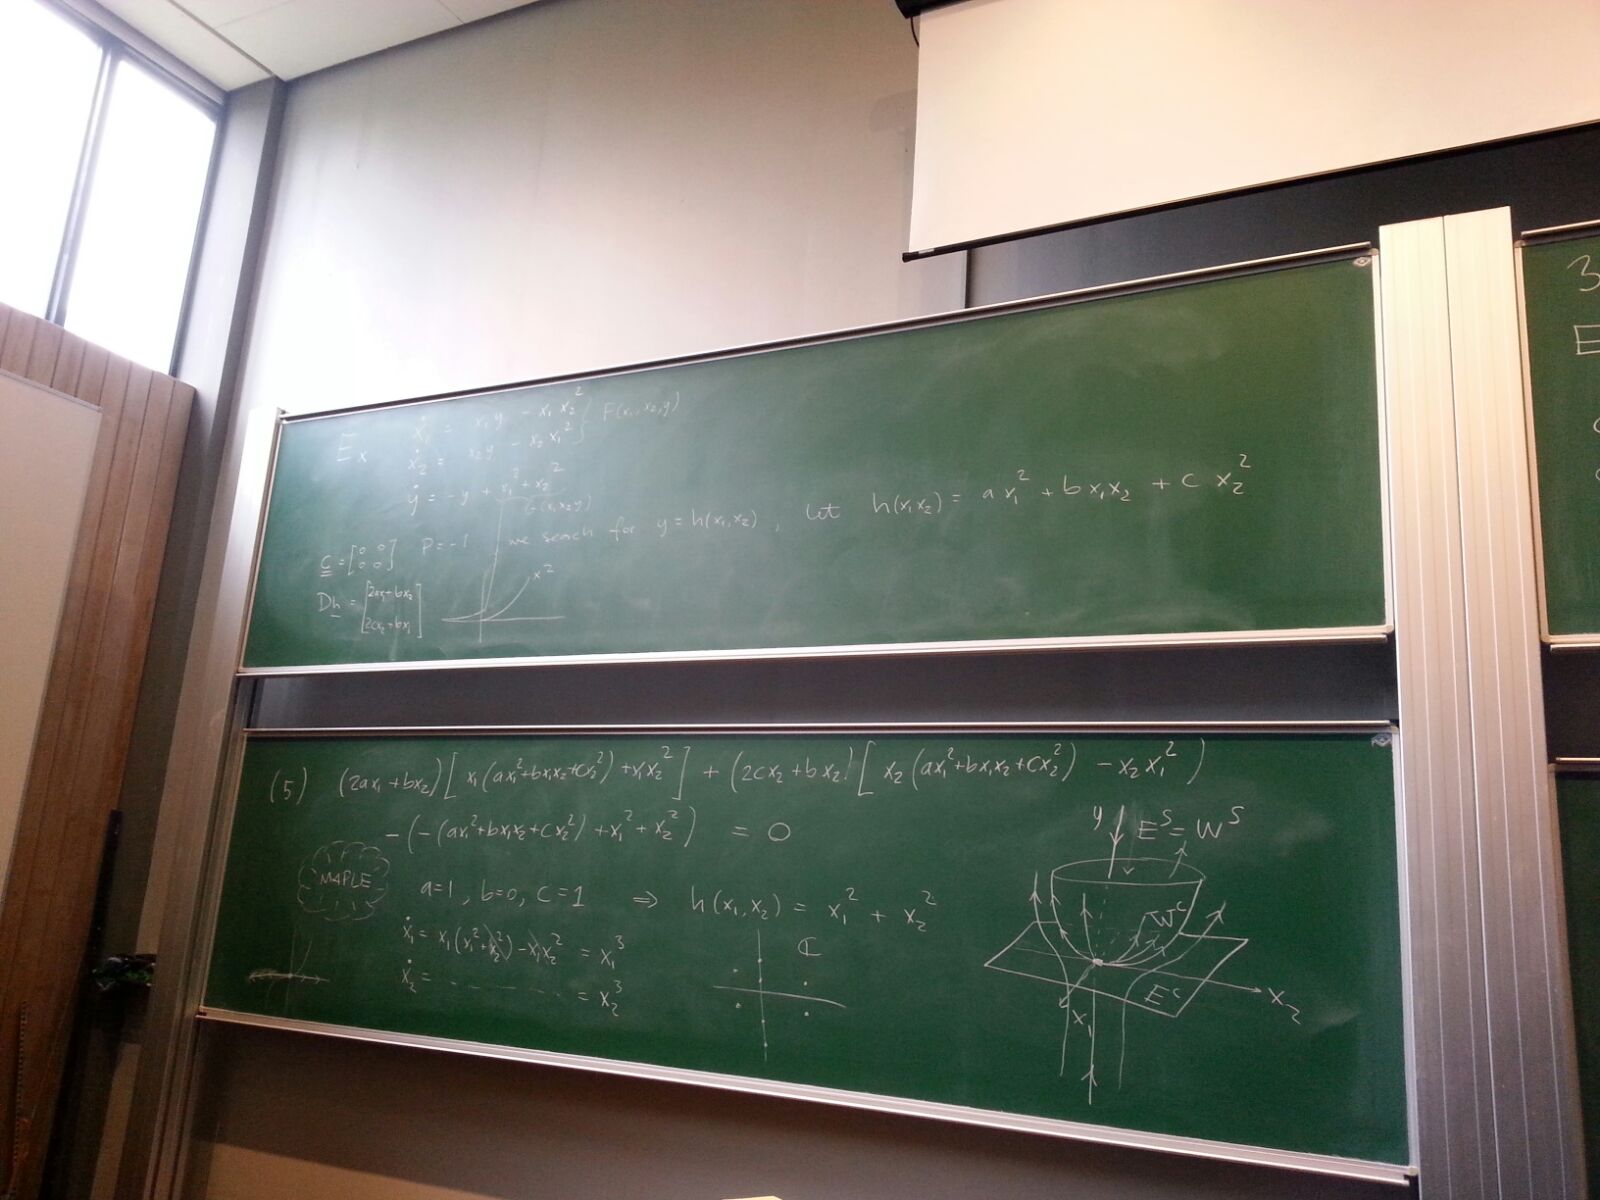 Ex ẋ₁ = x₁y - x₁x₂² } F(x₁, x₂, y)
ẋ₂ = x₂y - x₂x₁²
ẏ = -y + x₁² + x₂²
G(x₁, x₂, y)
C = [0 0 0 0] P = -1 we search for y = h(x₁, x₂), let h(x₁x₂) = ax₁² + bx₁x₂ + cx₂²
Dh = [2ax₁+bx₂ 2cx₂+bx₁]
x²
(5) (2ax₁ + bx₂)[x₁(ax₁²+bx₁x₂+cx₂²) + x₁x₂²] + (2cx₂+bx₂)[x₂(ax₁²+bx₁x₂+cx₂²) - x₂x₁²)
-(-(ax₁²+bx₁x₂+cx₂²) + x₁² + x₂²) = 0
MAPLE
a=1, b=0, c=1 ⇒ h(x₁, x₂) = x₁² + x₂²
ẋ₁ = x₁(x₁²+x₂²) - x₁x₂² = x₁³
ẋ₂ = - - - - - - = x₂³
ℂ
y Eˢ = Wˢ
Wᶜ
Eᶜ
x₁
x₂
3
E